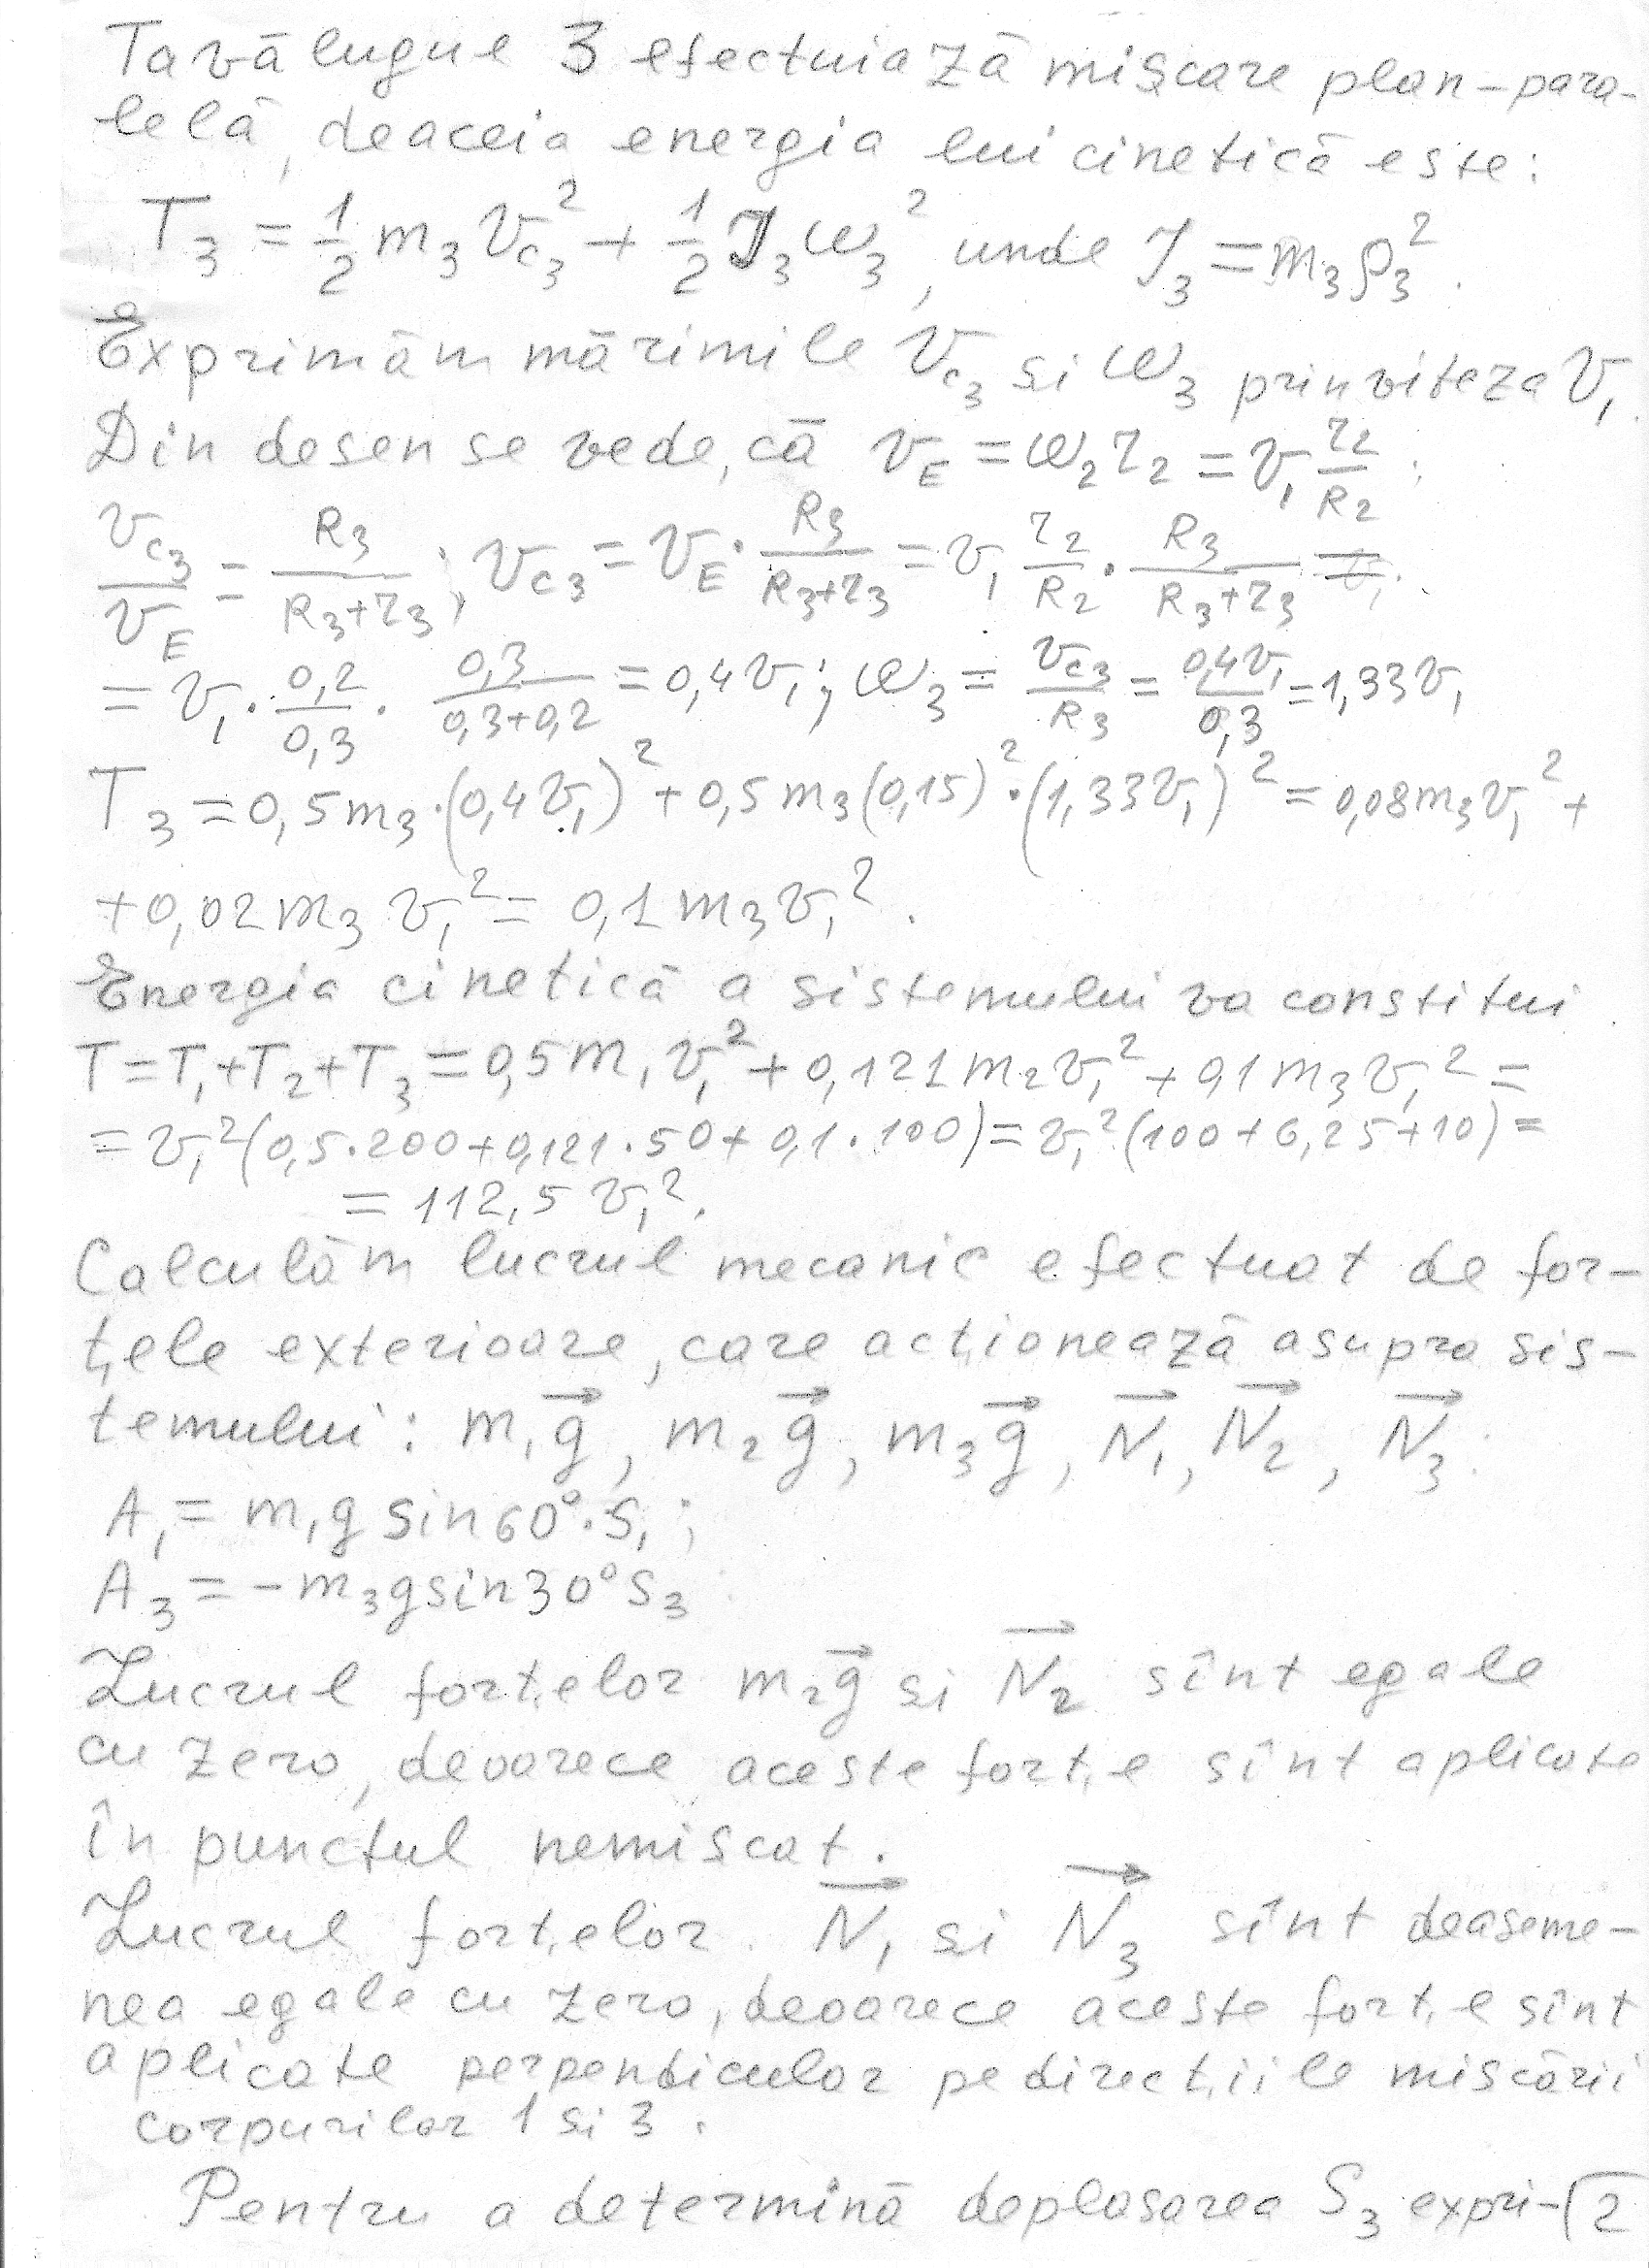 Tavălugul 3 efectuiază mișcare plan-para-
lelă, deaceia energia lui cinetică este:
T₃ = 1/2 m₃ v_c₃² + 1/2 J₃ ω₃², unde J₃ = m₃ρ₃².
Exprimăm mărimile v_c₃ și ω₃ prin viteza v₁.
Din desen se vede, că v_E = ω₂ r₂ = v₁ r₂/R₂;
v_c₃/v_E = R₃/(R₃+r₃); v_c₃ = v_E · R₃/(R₃+r₃) = v₁ r₂/R₂ · R₃/(R₃+r₃) =
= v₁ · 0,2/0,3 · 0,3/(0,3+0,2) = 0,4v₁; ω₃ = v_c₃/R₃ = 0,4v₁/0,3 = 1,33v₁
T₃ = 0,5m₃·(0,4v₁)² + 0,5m₃(0,15)²·(1,33v₁)² = 0,08m₃v₁² +
+0,02m₃v₁² = 0,1m₃v₁².
Energia cinetică a sistemului va constitui
T = T₁+T₂+T₃ = 0,5m₁v₁² + 0,121m₂v₁² + 0,1m₃v₁² =
= v₁²(0,5·200+0,121·50+0,1·100) = v₁²(100+6,25+10) =
= 112,5 v₁².
Calculăm lucrul mecanic efectuat de for-
țele exterioare, care acționează asupra sis-
temului: m₁g⃗, m₂g⃗, m₃g⃗, N⃗₁, N⃗₂, N⃗₃:
A₁ = m₁g sin60°·S₁;
A₃ = -m₃g sin30°S₃
Lucrul forțelor m₂g⃗ și N⃗₂ sînt egale
cu zero, deoarece aceste forțe sînt aplicate
în punctul nemișcat.
Lucrul forțelor N⃗₁ și N⃗₃ sînt deaseme-
nea egale cu zero, deoarece aceste forțe sînt
aplicate perpendicular pe direcțiile mișcării
corpurilor 1 și 3.
Pentru a determină deplasarea S₃ expri-
2